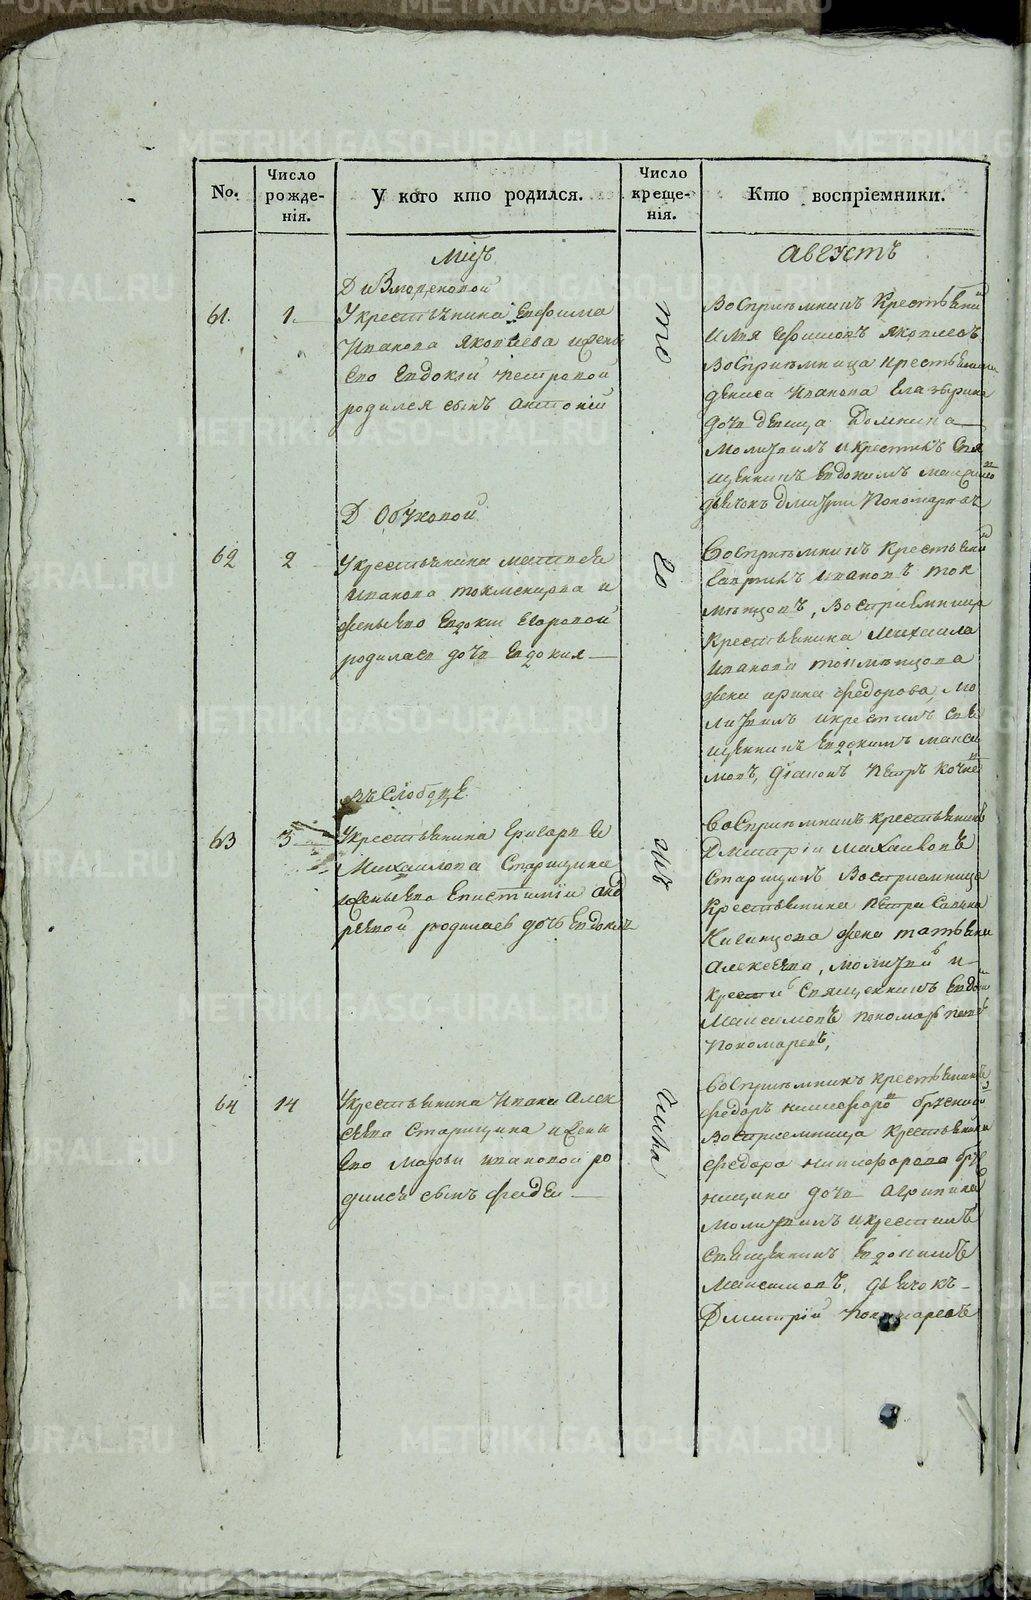 No.
Число рожде-
нія.
У кого кто родился.
Число креще-
нія.
Кто воспріемники.
Мцъ
Августъ
61.
1.
У крестьянина Ефима
Иванова Яковлева и жены
его Евдокіи Петровой
родился сынъ Антоній
Воспріемникъ крестьянинъ
Илья Ефимовъ Яковлевъ
воспріемница крестьянина
Дениса Иванова
дочь девица Домнина
молитвилъ и крестилъ свя
щенникъ Евдокимъ Максимо
дьячокъ Дмитрій Пономаревъ
Д Обуховой
62
2
У крестьянина Матвея
Иванова Токменцова и
жены его Евдокіи Егоровой
родилась дочь Евдокия
Воспріемникъ крестьянинъ
Гаврилъ Ивановъ Ток
менцовъ, воспріемница
крестьянина Михаила
Иванова Токменцова
жена Ирина Федорова, мо
литвилъ и крестилъ свя
щенникъ Евдокимъ Макси
мовъ, діаконъ Петръ
въ Слободе
63
3
У крестьянина Григорья
Михаилова Старицина
жены его Епистиміи Анд
реевой родилась дочь Евдокия
Воспріемникъ крестьянинъ
Дмитрій Михаиловъ
Старицинъ воспріемница
крестьянина Петра
жена Татьяна
Алексеева, молитвилъ и
крестилъ священникъ Евдоким
Максимовъ пономарь Петръ
Пономаревъ,
64
14
У крестьянина Ивана Алек
сеева Старицина и жены
его Марфы Ивановой ро
дился сынъ Фадей
числа
Воспріемникъ крестьянинъ
Федоръ Никифоровъ
воспріемница крестьянина
Федора Никифорова
дочь Агрипина
молитвилъ и крестилъ
священникъ Евдокимъ
Максимовъ, дьячокъ
Дмитрій Пономаревъ
METRIKI.GASO-URAL.RU